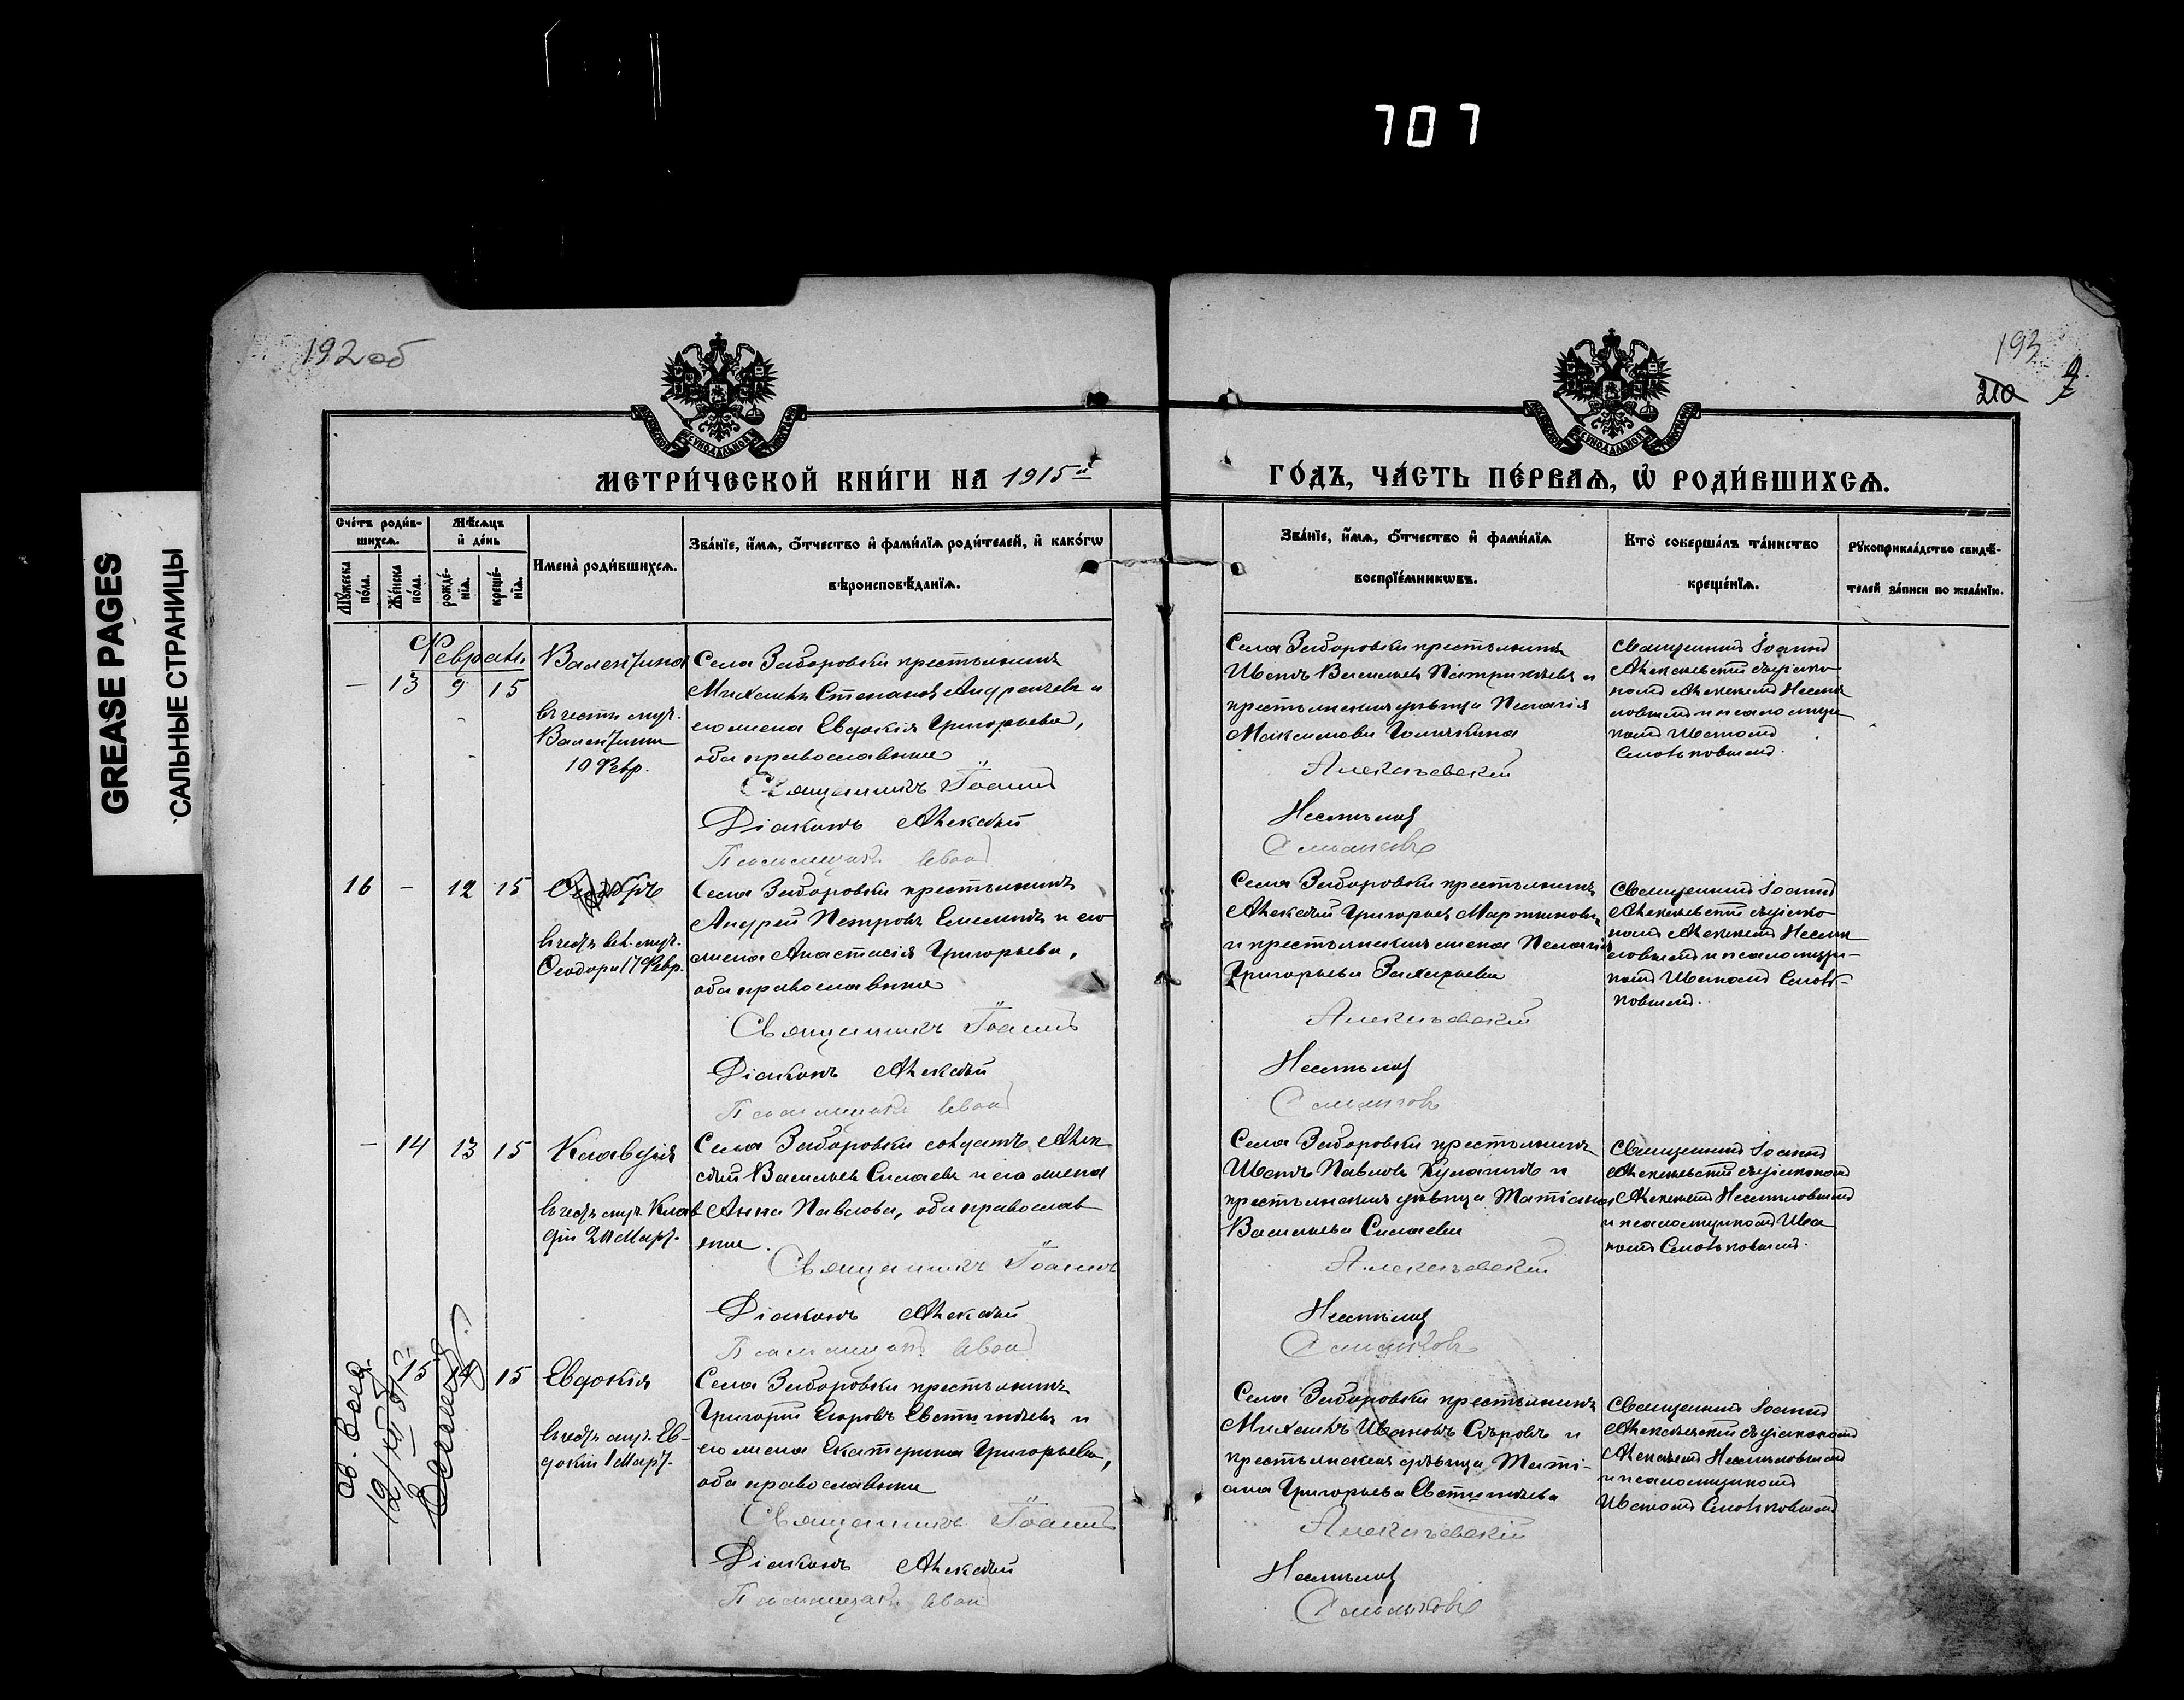 707
GREASE PAGES
САЛЬНЫЕ СТРАНИЦЫ
192 об
193
210
МЕТРИ́ЧЕСКОЙ КНИ́ГИ НА 1915й
ГО́ДЪ, ЧА́СТЬ ПЕ́РВАѦ, Ѡ҆ РОДИ́ВШИХСѦ.
Сче́тъ роди́в-
шихсѧ.
Мѣ́сѧцъ
и҆ де́нь
Мꙋ́жеска
по́ла.
Же́нска
по́ла.
рожде́-
нїѧ.
креще́-
нїѧ.
Имена̀ роди́вшихсѧ.
Зва́нїе, и҆́мѧ, ѻ҆́тчество и҆ фами́лїѧ роди́телей, и҆ како́гѡ
вѣроисповѣ́данїѧ.
Зва́нїе, и҆́мѧ, ѻ҆́тчество и҆ фами́лїѧ
воспрїе́мникѡвъ.
Кто̀ соверша́лъ та́инство
креще́нїѧ.
Рꙋкоприкла́дство свидѣ́-
телей за́писи по жела́нїю.
Февраль
— 13 9 15
Валентина
въ честь муч.
Валентины
10 Февр.
Села Заборовки крестьянинъ
Михаилъ Степановъ Андреичевъ и
его жена Евдокія Григорьева,
оба православные
Священникъ Іоаннъ
Діаконъ Алексѣй
Псаломщикъ Иванъ
Села Заборовки крестьянинъ
Иванъ Васильевъ Патрикѣевъ и
крестьянская дѣвица Пелагія
Максимова Голичкина
Алексѣевскій
Несмѣлов
Смольковъ
Священникъ Іоаннъ
Алексѣевскій съ діако-
номъ Алексѣемъ Несмѣ
ловымъ и псаломщи
комъ Иваномъ
Смольковымъ.
16 — 12 15
Ѳеодоръ
въ честь вел. муч.
Ѳеодора 17 Февр.
Села Заборовки крестьянинъ
Андрей Петровъ Емелинъ и его
жена Анастасія Григорьева,
оба православные
Священникъ Іоаннъ
Діаконъ Алексѣй
Псаломщикъ Иванъ
Села Заборовки крестьянинъ
Алексѣй Григорьевъ Мартыновъ
и крестьянская жена Пелагія
Григорьева Захарьева
Алексѣевскій
Несмѣлов
Смольковъ
Священникъ Іоаннъ
Алексѣевскій съ діако-
номъ Алексѣемъ Несмѣ
ловымъ и псаломщи-
комъ Иваномъ Смоль-
ковымъ.
— 14 13 15
Клавдія
въ честь муч. Клав
діи 20 Март.
Села Заборовки солдатъ Алек
сѣй Васильевъ Силаевъ и его жена
Анна Павлова, оба православ
ные.
Священникъ Іоаннъ
Діаконъ Алексѣй
Псаломщикъ Иванъ
Села Заборовки крестьянинъ
Иванъ Павловъ Кулагинъ и
крестьянская дѣвица Татіана
Васильева Силаева
Алексѣевскій
Несмѣлов
Смольковъ
Священникъ Іоаннъ
Алексѣевскій съ діакономъ
Алексѣемъ Несмѣловымъ
и псаломщикомъ Ива
номъ Смольковымъ.
15 15
Евдокія
въ честь муч. Ев-
докіи 1 Март.
Села Заборовки крестьянинъ
Григорій Егоровъ Евстигнѣевъ и
его жена Екатерина Григорьева,
оба православные
Священникъ Іоаннъ
Діаконъ Алексѣй
Псаломщикъ Иванъ
Села Заборовки крестьянинъ
Михаилъ Ивановъ Сѣровъ и
крестьянская дѣвица Тати-
ана Григорьева Евстигнѣева
Алексѣевскій
Несмѣлов
Смольковъ
Священникъ Іоаннъ
Алексѣевскій съ діакономъ
Алексѣемъ Несмѣловымъ
и псаломщикомъ
Иваномъ Смольковымъ